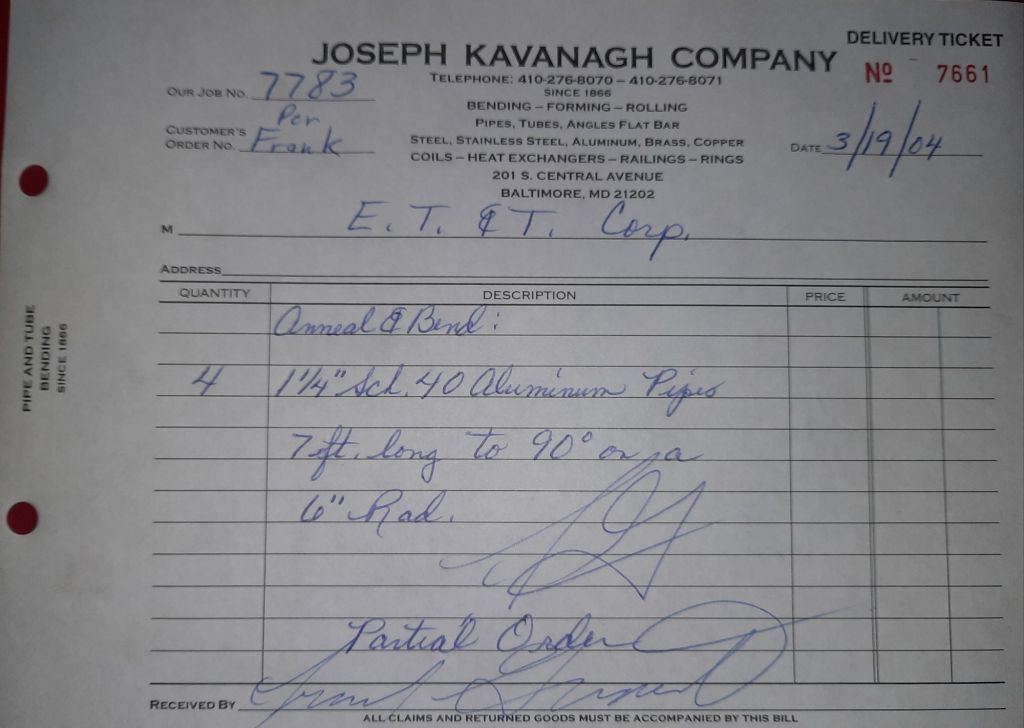 DELIVERY TICKET
JOSEPH KAVANAGH COMPANY
Nº 7661
TELEPHONE: 410-276-8070 – 410-276-8071
SINCE 1866
OUR JOB NO. 7783
BENDING – FORMING – ROLLING
PIPES, TUBES, ANGLES FLAT BAR
CUSTOMER'S ORDER NO. Per Frank
STEEL, STAINLESS STEEL, ALUMINUM, BRASS, COPPER
DATE 3/19/04
COILS – HEAT EXCHANGERS – RAILINGS – RINGS
201 S. CENTRAL AVENUE
BALTIMORE, MD 21202
M E. T. & T. Corp.
ADDRESS
QUANTITY DESCRIPTION PRICE AMOUNT
Anneal & Bend:
4 1 1/4" Sch. 40 Aluminum Pipes
7 ft. long to 90° on a
6" Rad.
Partial Order
RECEIVED BY
ALL CLAIMS AND RETURNED GOODS MUST BE ACCOMPANIED BY THIS BILL
PIPE AND TUBE
BENDING
SINCE 1866